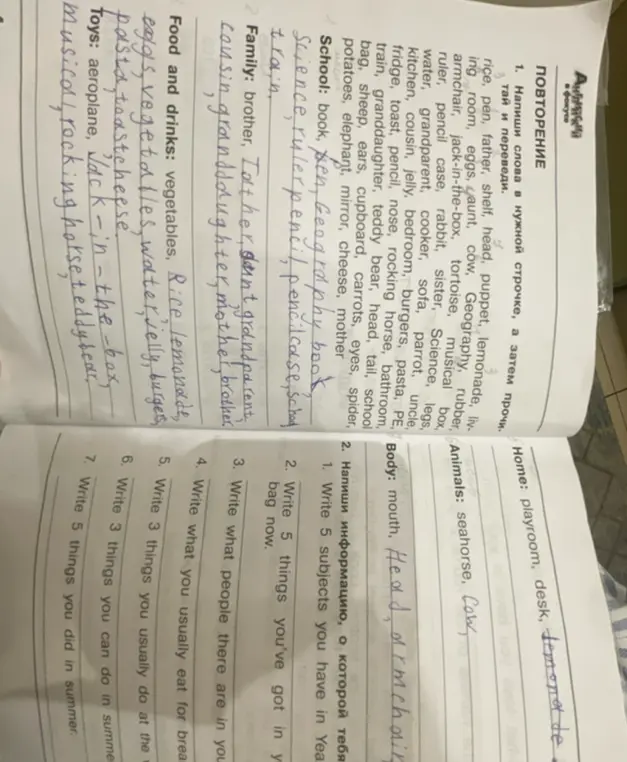 Английский
в фокусе
ПОВТОРЕНИЕ
1. Напиши слова в нужной строчке, а затем прочи-
тай и переведи.
rice, pen, father, shelf, head, puppet, lemonade, liv-
ing room, eggs, aunt, cow, Geography, rubber,
armchair, jack-in-the-box, tortoise, musical box,
ruler, pencil case, rabbit, sister, Science, legs,
water, grandparent, cooker, sofa, parrot, uncle,
kitchen, cousin, jelly, bedroom, burgers, pasta, PE,
fridge, toast, pencil, nose, rocking horse, bathroom,
train, granddaughter, teddy bear, head, tail, school
bag, sheep, ears, cupboard, carrots, eyes, spider,
potatoes, elephant, mirror, cheese, mother
School: book, pen, Geography book,
Science, ruler, pencil, pencil case, school
train.
Family: brother, Father, aunt, grandparent,
cousin, granddaughter, mother, brother
Food and drinks: vegetables, Rice lemonade,
eggs, vegetables, water, jelly, burgers,
pasta, toast cheese
Toys: aeroplane, Jack-in-the-box,
musical, rocking horse, teddy bear,
Home: playroom, desk, lemonade
Animals: seahorse, Cow,
Body: mouth, Head, armchair
2. Напиши информацию, о которой тебя
1. Write 5 subjects you have in Yea
2. Write 5 things you've got in y
bag now.
3. Write what people there are in you
4. Write what you usually eat for brea
5. Write 3 things you usually do at the
6. Write 3 things you can do in summe
7. Write 5 things you did in summer.